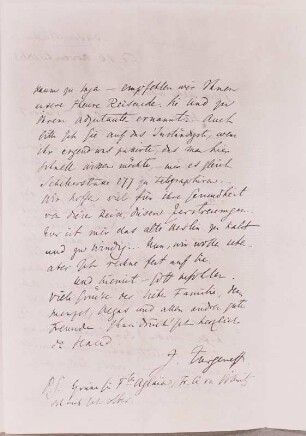 kaum zu sagen — empfehlen wir Ihnen
unsere theure Reisende. Sie sind zu
Ihrem Adjutanten ernannt. — Auch
bitte ich Sie auf das Inständigste, wenn
ihr irgend was passirte, das man hier
schnell wissen möchte — mir es gleich
Schillerstrasse 277 zu telegraphiren.
Wir hoffen viel für ihre Gesundheit
von diese Reise, diesen Zerstreuungen.
Nur ist mir das alte Berlin zu kalt
und zu windig. — Nun, wir wollen sehn.
aber ich rechne fest auf Sie.
Und hiemit — Gott befohlen.
Viele Grüsse der liebe Familie, den
Menzel, Begas und allen andern guten
Freunden. Ihnen drück' ich herzlich
die Hand
J. Turgeneff
PS